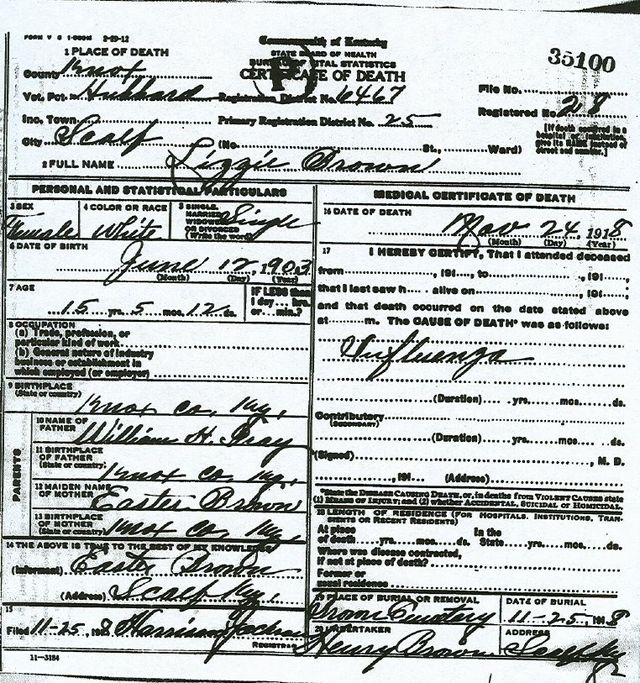 FORM V S 1-500M 2-29-12
Commonwealth of Kentucky
STATE BOARD OF HEALTH
BUREAU OF VITAL STATISTICS
CERTIFICATE OF DEATH
35100
1 PLACE OF DEATH
County Knox
Vot. Pct. Hubbard Registration District No. 6467
File No.
Inc. Town Primary Registration District No. 25
Registered No. 28
City Scalf (No. St., Ward)
[If death occurred in a hospital or institution, give its NAME instead of street and number.]
2 FULL NAME Lizzie Brown
PERSONAL AND STATISTICAL PARTICULARS
3 SEX Female
4 COLOR OR RACE White
5 SINGLE, MARRIED, WIDOWED OR DIVORCED (Write the word) Single
6 DATE OF BIRTH
June 12, 1903
(Month) (Day) (Year)
7 AGE
15 yrs. 5 mos. 12 ds.
IF LESS than
1 day... hrs.
or... min.?
8 OCCUPATION
(a) Trade, profession, or
particular kind of work
(b) General nature of industry
business or establishment in
which employed (or employer)
9 BIRTHPLACE
(State or country)
Knox co, Ky,
PARENTS
10 NAME OF
FATHER William H. Gray
11 BIRTHPLACE
OF FATHER
(State or country) Knox co, Ky,
12 MAIDEN NAME
OF MOTHER Easter Brown
13 BIRTHPLACE
OF MOTHER
(State or country) Knox co, Ky
14 THE ABOVE IS TRUE TO THE BEST OF MY KNOWLEDGE
(Informant) Easter Brown
(Address) Scalf Ky,
15
Filed 11-25, 1918 Harrison Jackson
REGISTRAR
11-3184
MEDICAL CERTIFICATE OF DEATH
16 DATE OF DEATH
Nov 24 1918
(Month) (Day) (Year)
17 I HEREBY CERTIFY, That I attended deceased
from , 191 , to , 191 ,
that I last saw h alive on , 191 ,
and that death occurred on the date stated above
at m. The CAUSE OF DEATH* was as follows:
Influenza
(Duration) yrs. mos. ds.
Contributory
(SECONDARY)
(Duration) yrs. mos. ds.
(Signed) M. D.
, 191 (Address)
*State the DISEASE CAUSING DEATH, or, in deaths from VIOLENT CAUSES state
(1) MEANS OF INJURY; and (2) whether ACCIDENTAL, SUICIDAL or HOMICIDAL.
18 LENGTH OF RESIDENCE (FOR HOSPITALS, INSTITUTIONS, TRANSIENTS OR RECENT RESIDENTS)
At place In the
of death yrs. mos. ds. State yrs. mos. ds.
Where was disease contracted,
if not at place of death?
Former or
usual residence
19 PLACE OF BURIAL OR REMOVAL
Cemetery
DATE OF BURIAL
11-25, 1918
20 UNDERTAKER
Henry Brown
ADDRESS
Scalf Ky